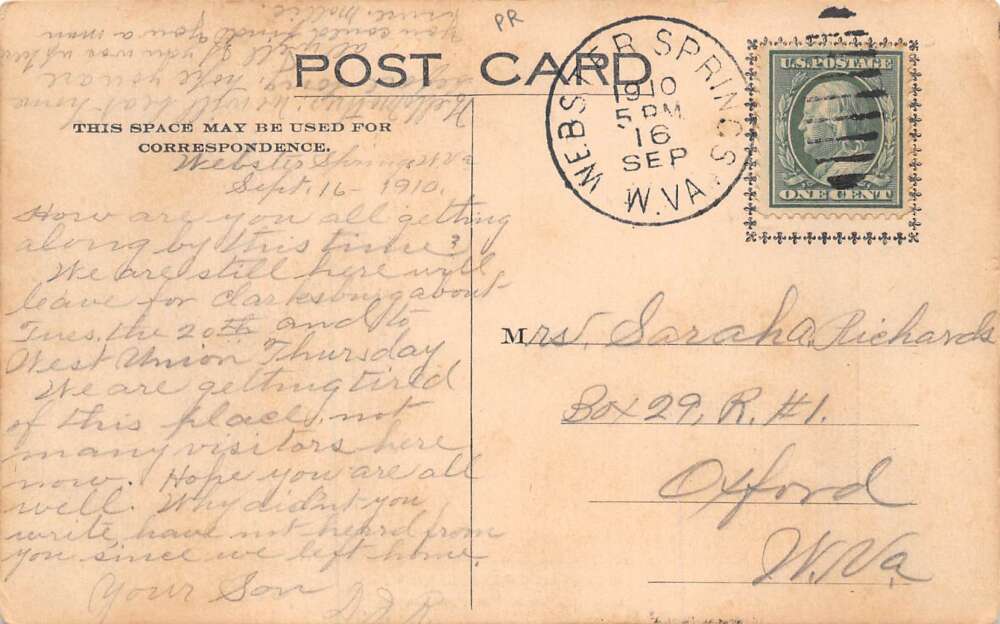 PR
POST CARD
THIS SPACE MAY BE USED FOR
CORRESPONDENCE.
WEBSTER SPRINGS
1910
5 PM
16
SEP
W.VA.
U.S. POSTAGE
ONE CENT
Webster Springs W.Va
Sept. 16 - 1910.
How are you all getting
along by this time?
We are still here will
leave for Clarksburg about
Tues. the 20th and to
West Union Thursday
We are getting tired
of this place, not
many visitors here
now. Hope you are all
well. Why didn't you
write, have not heard from
you since we left home.
Your Son
Mrs. Sarah A. Richards
Box 29, R. #1.
Oxford
W. Va.
will beat home
hope you are
all well If you was up here
You could find you a man
Mollie.